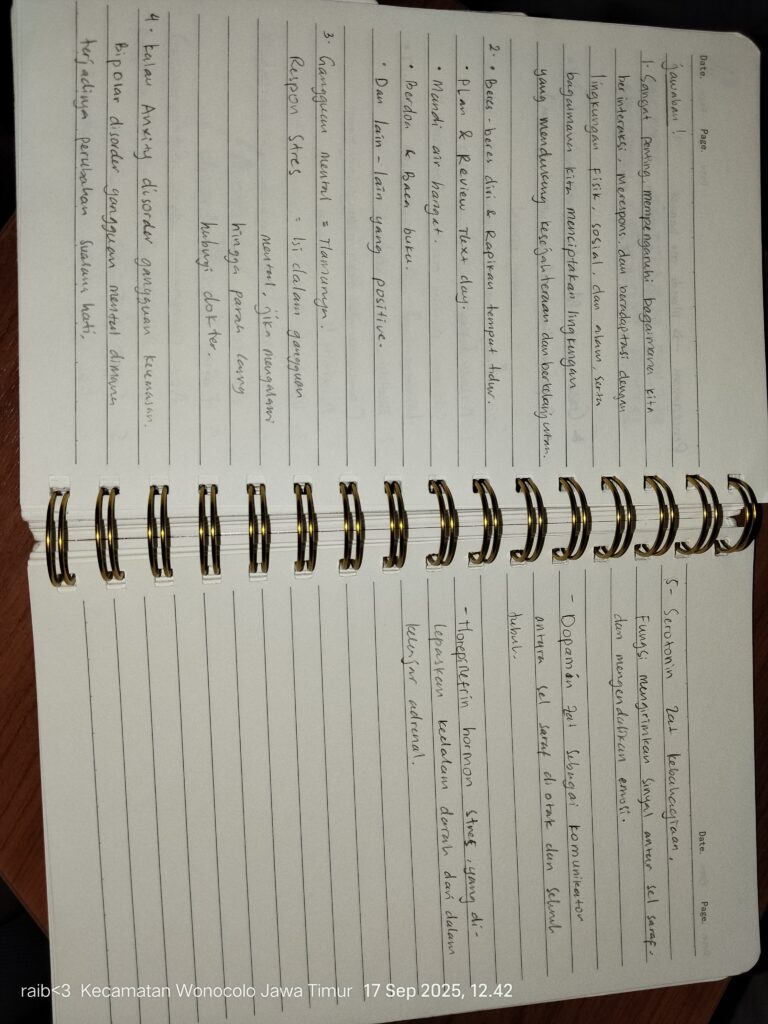 Date. Page.
jawaban!
1. Sangat penting mempengaruhi bagaimana kita
berinteraksi, merespons, dan beradaptasi dengan
lingkungan fisik, sosial, dan alam, serta
bagaimana kita menciptakan lingkungan
yang mendukung kesejahteraan dan berkelanjutan.
2. • Beres-beres diri & Rapikan tempat tidur.
• Plan & Review next day.
• Mandi air hangat.
• Berdoa & Baca buku.
• Dan lain-lain yang positive.
3. Gangguan mental = namanya.
Respon Stres = Isi dalam gangguan
mental, jika mengalami
hingga parah
hubugi dokter.
4. Kalau Anxity disorder gangguan kecemasan.
Bipolar disorder gangguan mental dimana
terjadinya perubahan suasam hati.
Date. Page.
5- Serotonin zat kebahagiaan,
Fungsi mengirimkan sinyal antar sel saraf,
dan mengendalikan emosi.
- Dopamin zat sebagai komunikator
antara sel saraf di otak dan seluruh
tubuh.
- Norepinefrin hormon stres, yang di-
lepaskan kedalam darah dari dalam
kelenjar adrenal.
raib<3 Kecamatan Wonocolo Jawa Timur 17 Sep 2025, 12.42